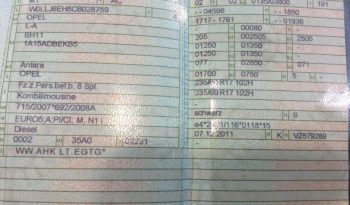 AC
W0LLJ6EH8CB028759
OPEL
L-A
BH11
1A15ADBEKB5
Antara
OPEL
Fz.z.Pers.bef.b. 8 Spl.
Kombilimousine
715/2007*692/2008A
EURO5;A,PI/CI; M, N1 I
Diesel
0002 35A0 02231
WW.AHK LT.EGTG*
02 02 191
--04596 --1850
1717-1761 --01936
00080
205 002505 2505
01250 01350
01250 01350
077 02850 071
01700 0750 5
235/60 R17 102H
235/60 R17 102H
schwarz 9
07.12.2011 K VZ579289